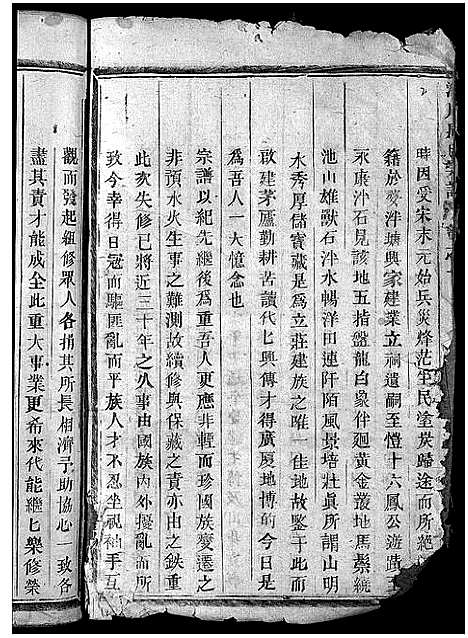 時因受宋末元始兵災烽茫生民塗炭歸途而所絕
籍於婺泮塘興家建業立祠遺嗣至愷十六鳳公遊蹟至
永康泮石見該地五指盤龍白象伴廻黃金叢地馬鬃統
池山雄獸石泮水暢洋田連阡陌風景培壯眞所謂山明
水秀厚儲寶藏是爲立莊建族之唯一佳地故鑒于此而
敢建茅廬勤耕苦讀代匕興傳才得廣厦地博的今日是
爲吾人一大憶念也
宗譜以紀先繼後爲重吾人更應非輕而珍國族變遷之
非預水火生事之難測故續修與保藏之責亦由之鉄重
此亥失修已將近三十年之久事由國族內外擾亂而所
致今幸得日冠而驅匪亂而平族人才不忍坐視袖手互
觀而發起組修眾人各捐其所長相濟予助協心一致各
盡其責才能成全此重大事業更希來代能繼匕樂修榮